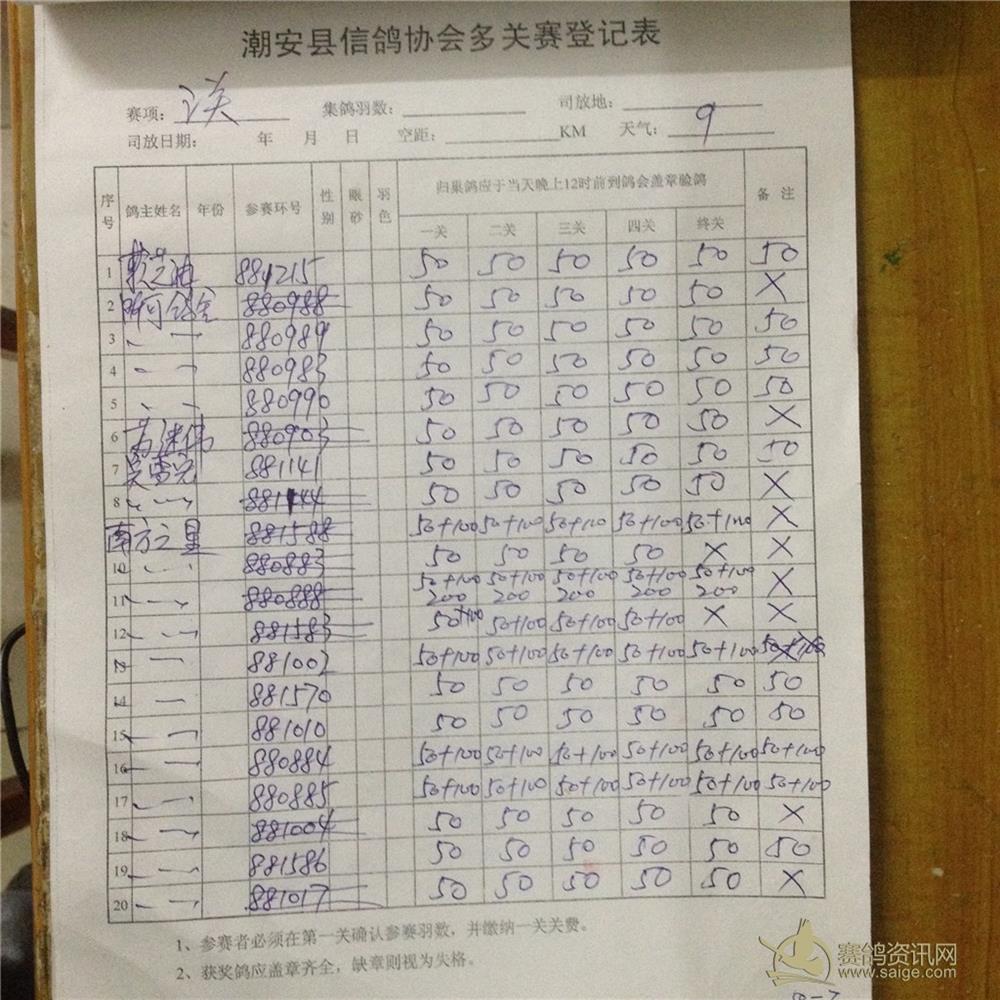 潮安县信鸽协会多关赛登记表
赛项: 集鸽羽数: 司放地:
司放日期: 年 月 日 空距: KM 天气: 9
序号 鸽主姓名 年份 参赛环号 性别 眼砂 羽色 归巢鸽应于当天晚上12时前到鸽会盖章验鸽 备注
一关 二关 三关 四关 终关
1 884215 50 50 50 50 50 50
2 880988 50 50 50 50 50 X
3 880989 50 50 50 50 50 50
4 880983 50 50 50 50 50 50
5 880990 50 50 50 50 50 50
6 880903 50 50 50 50 50 X
7 881141 50 50 50 50 50 50
8 881144 50 50 50 50 50 X
南方之星 881588 50+100 50+100 50+100 50+100 50+100 X
10 880883 50 50 50 50 X X
11 880888 50+100 200 50+100 200 50+100 200 50+100 200 50+100 200 X
12 881583 50+100 50+100 50+100 50+100 X X
13 881002 50+100 50+100 50+100 50+100 50+100
14 881570 50 50 50 50 50 50
15 881010 50 50 50 50 50 50
16 880884 50+100 50+100 50+100 50+100 50+100 50+100
17 880885 50+100 50+100 50+100 50+100 50+100 50+100
18 881004 50 50 50 50 50 X
19 881586 50 50 50 50 50 50
20 881017 50 50 50 50 50 X
1、参赛者必须在第一关确认参赛羽数，并缴纳一关关费。
2、获奖鸽应盖章齐全，缺章则视为失格。
赛鸽资讯网
www.saige.com